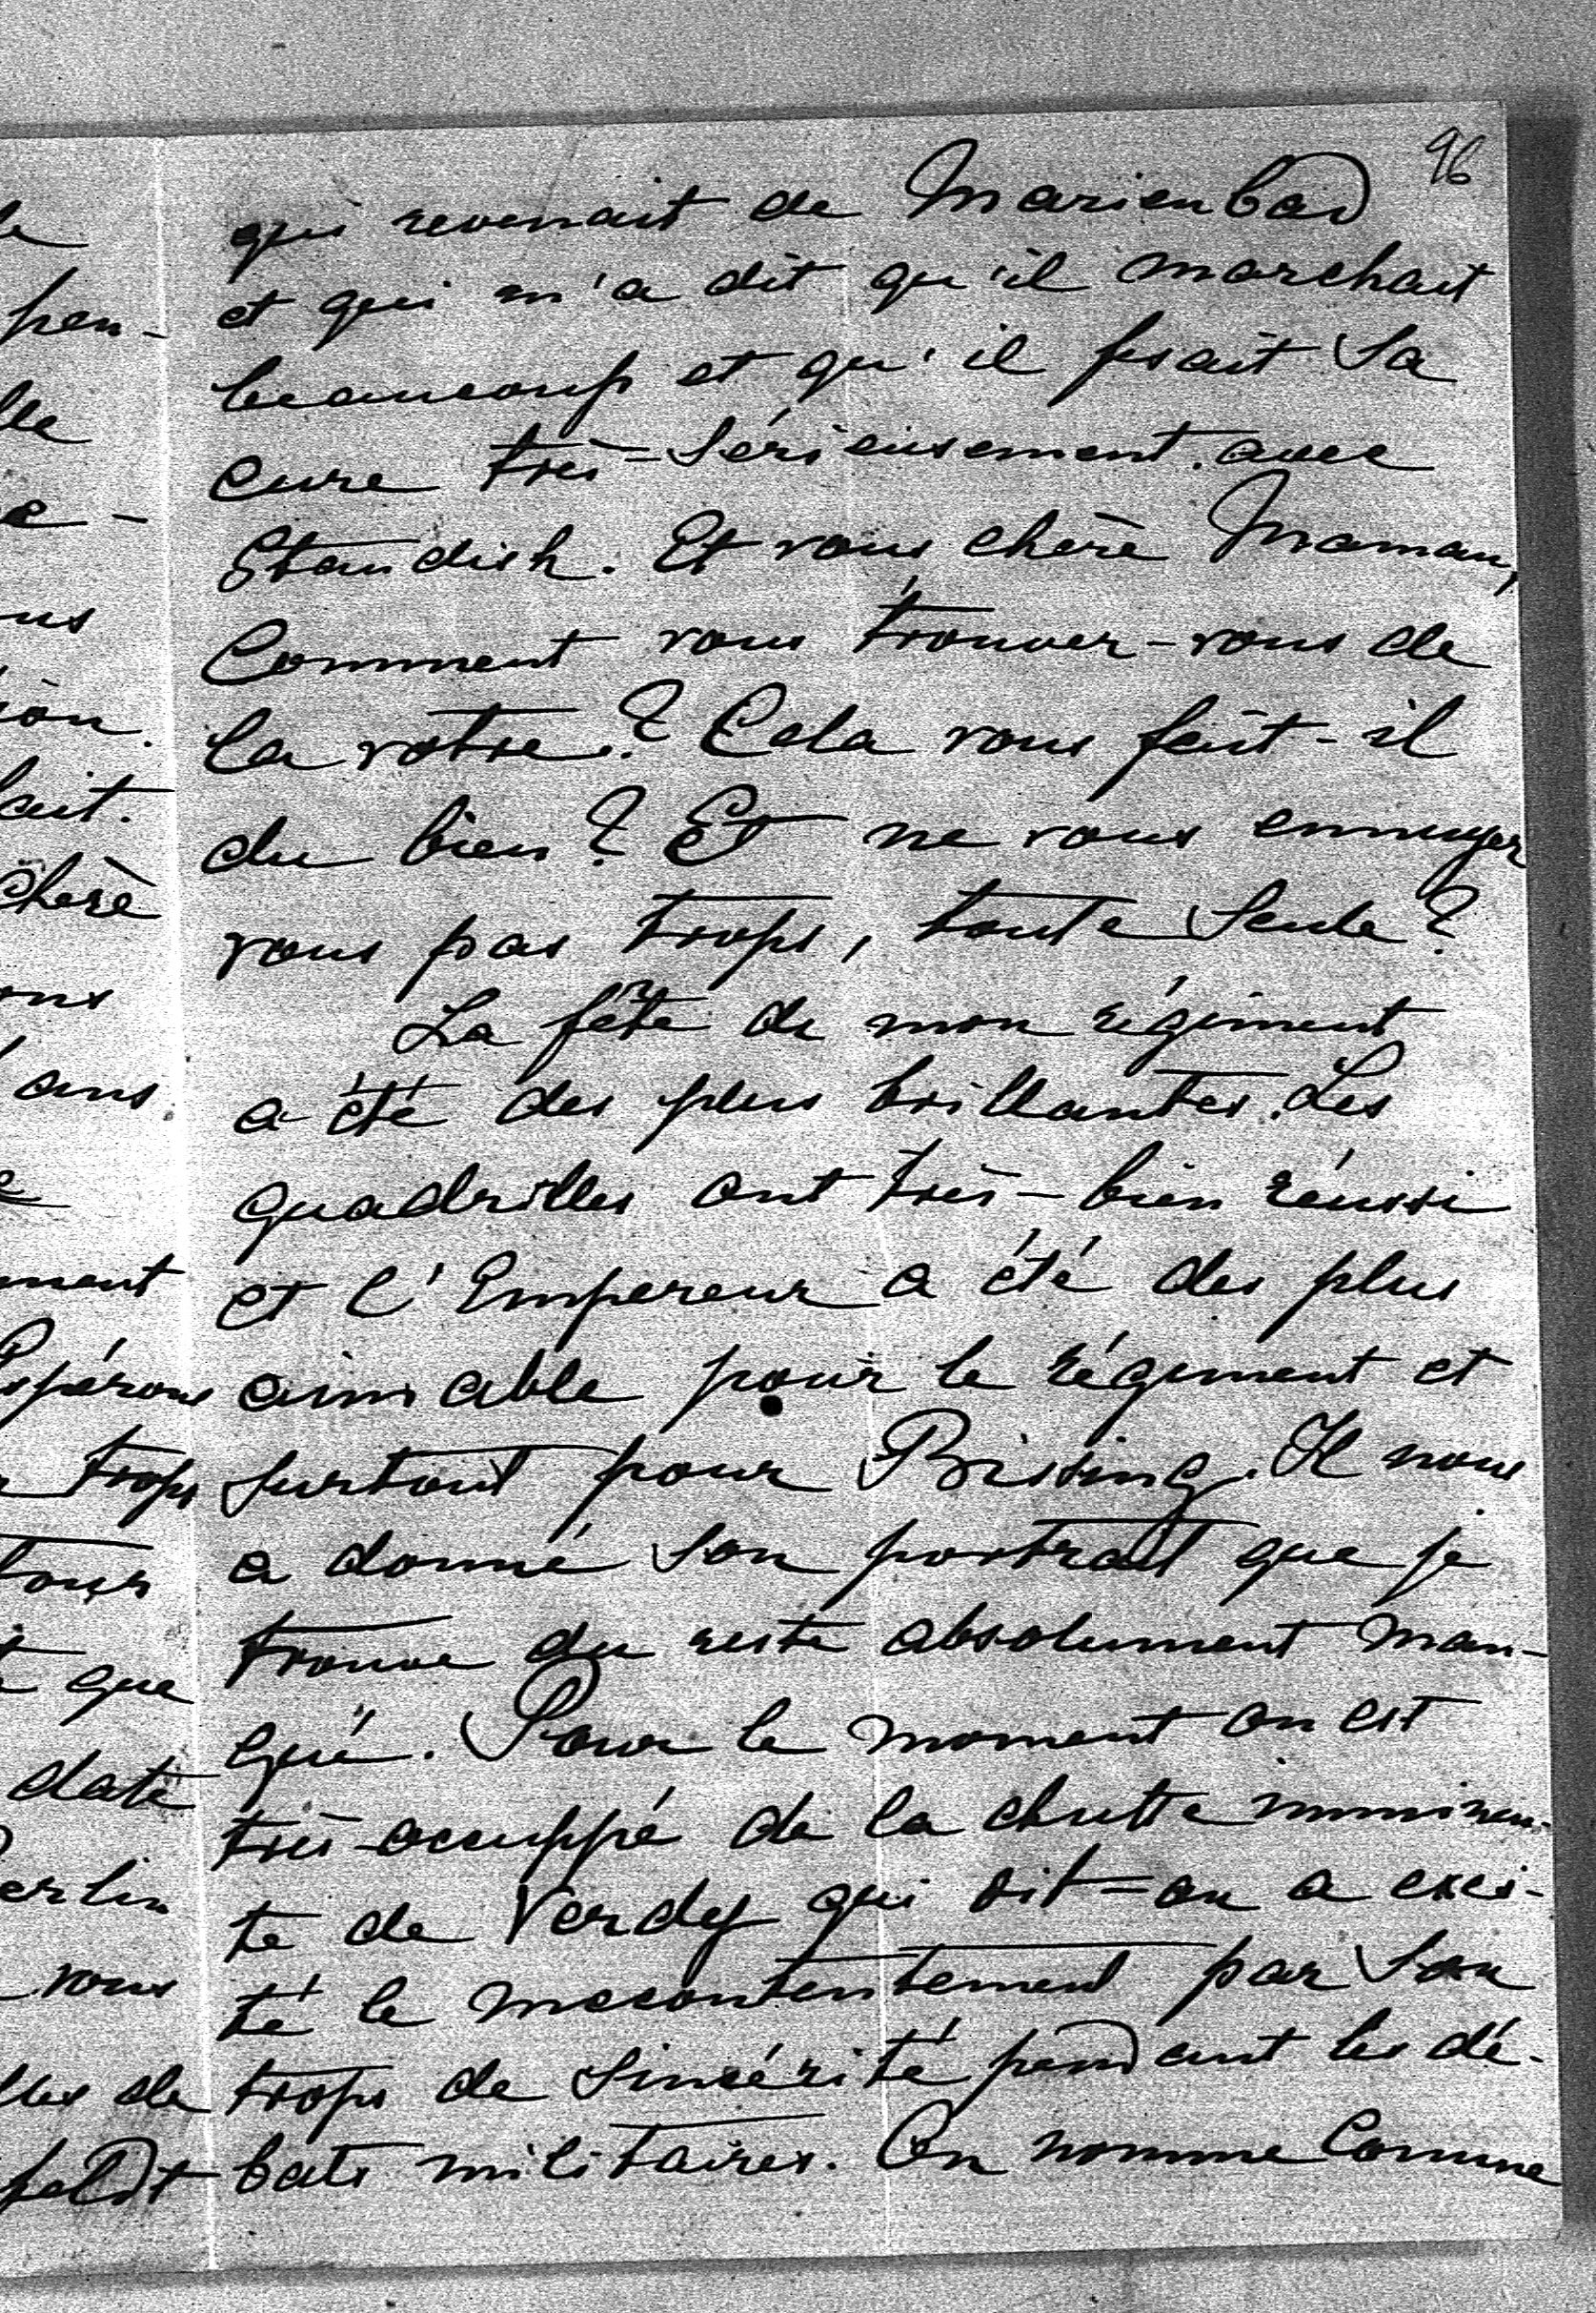 96
qui revenait de Marienbad
et qui m'a dit qu'il marchait
beaucoup et qu'il fesait sa
cure très-sérieusement avec
Standish. Et vous chère Maman,
Comment vous trouver-vous de
la votre? Cela vous fait-il
du bien? Et ne vous ennuyer
vous pas trops, toute seule?
La fête de mon régiment
a été des plus brillantes. Les
quadrilles ont très-bien réussi
et l'Empereur a été des plus
aimable pour le régiment et
surtout pour Bissing. Il nous
a donné son portrait que je
trouve du reste absolument man-
qué. Pour le moment on est
très-occuppé de la chutte imminen-
te de Verdy qui dit-on a exci-
té le mecontentement par son
trops de sincérité pendant les dé-
bats militaires. On nomme Comme
le
pen-
lle
e-
ous
ion.
lait.
Chère
ons
ans
e
ment
Espérons
trops
tous
que
date
Berlin
vous
lles de
feldt